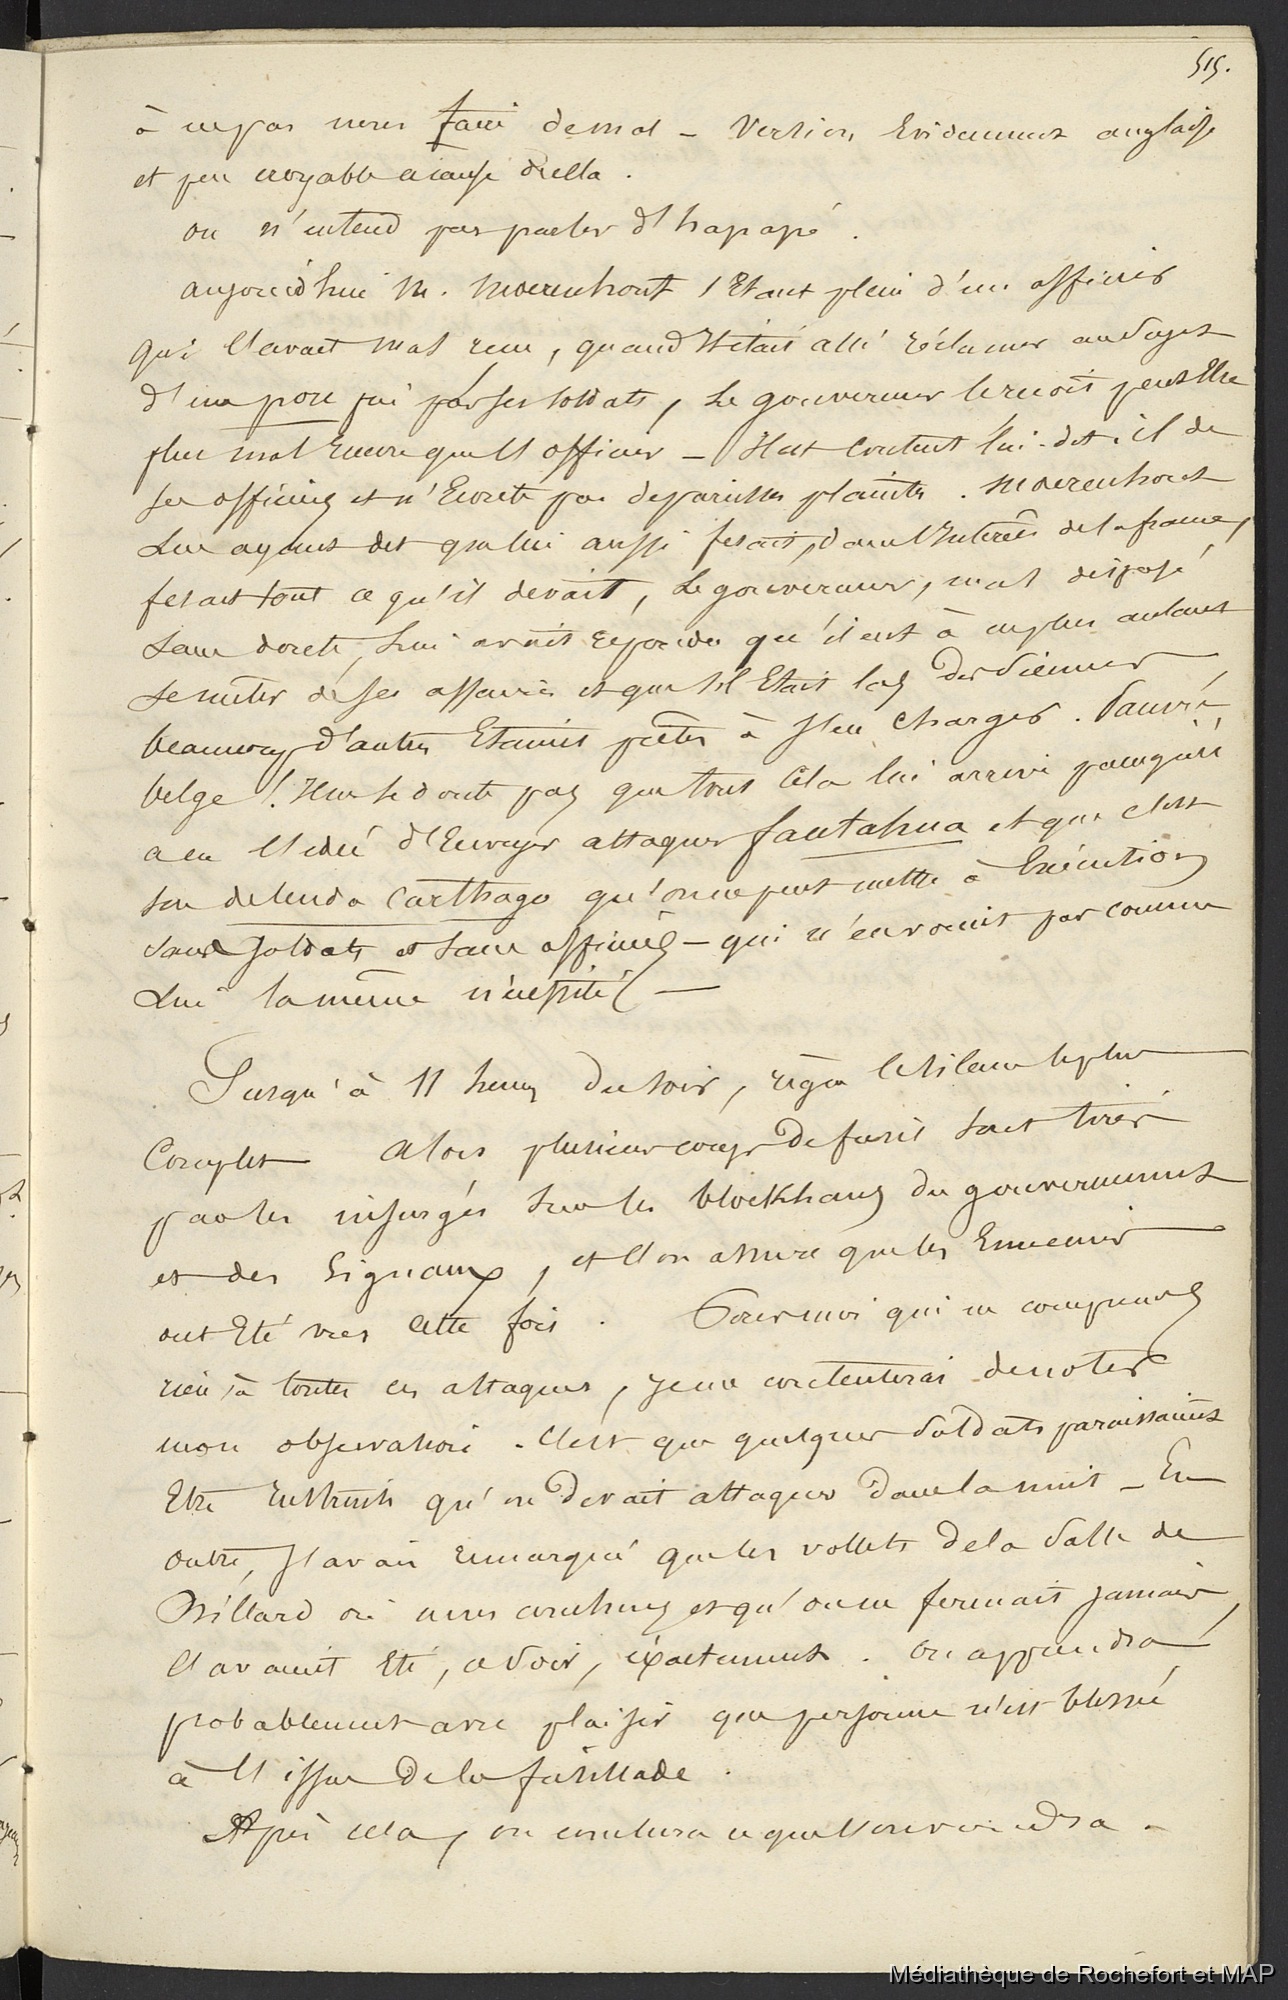 515.
à ne pas nous faire de mal – Version évidemment anglaise
et peu croyable à cause d'ella.
on n'entend pas parler d'hapapé.
aujourd'hui M. Moerenhout s'étant plein d'un officier
qui l'avait mal reçu, quand il était allé réclamer au sujet
d'un porc pri par ses soldats, le gouverneur le reçoit peut être
plus mal encore que l'officier – Il est content lui dit-il de
ses officiers et n'écoute pas de pareilles plaintes. Moerenhout
lui ayant dit que lui aussi fesait, dans l'intérêt de la france,
fesait tout ce qu'il devait, le gouverneur, mal disposé
sans doute, lui avait répondu qu'il eut à ne plus autant
se mêler de ses affaires et que s'il était las des siennes
beaucoup d'autres étaient prêts à s'en charger. Pauvre
belge! Il ne se doute pas que tout cela lui arrive parcequ'il
a eu l'idée d'envoyer attaquer fautahua et que c'est
son delenda Carthago qu'on ne peut mettre à exécution
sans soldats et sans officiers – qui n'en voient pas comme
lui la même nécessité –
Jusqu'à 11 heures du soir, règne le silence le plus
complet Alors plusieurs coups de fusil sont tirés
par les insurgés sur les blockhaus du gouvernement
et des signaux, et l'on assure que les ennemis
ont été vus cette fois. Pour moi qui ne comprends
rien à toutes ces attaques, je me contenterai de noter
mon observation. C'est que quelques soldats paraissaient
être instruits qu'on devait attaquer dans la nuit – En
outre, j'avais remarqué que les vollets de la salle de
Billard où nous couchons et qu'on ne fermait jamais,
l'avaient été, ce soir, exactement. On apprendra
probablement avec plaisir que personne n'est blessé
à l'issue de la fusillade.
Après cela, on conclura ce que l'on voudra.
Médiathèque de Rochefort et MAP